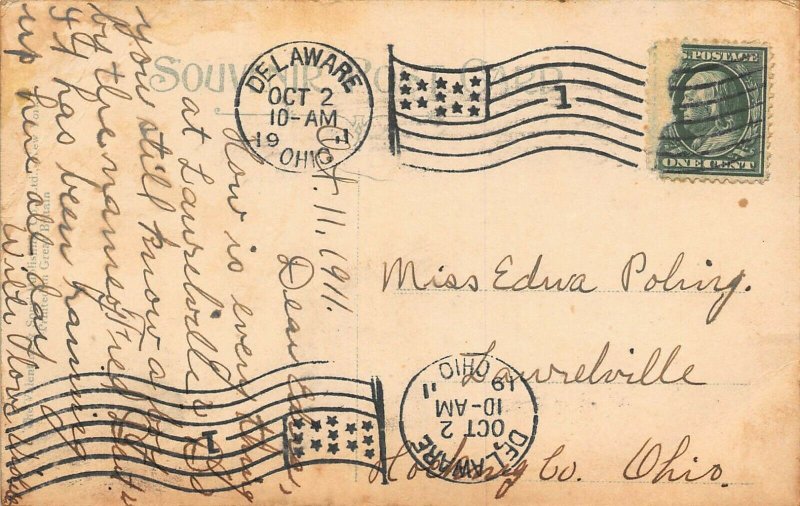 SOUVENIR POST CARD
DELAWARE
OCT 2
10-AM
19 11
OHIO
1
U.S. POSTAGE
ONE CENT
Oct. 11, 1911.
Dear
How is every thing
at Laurelville Do
you still know a boy
by the name Fred
It has been raining
up here all day
With love
Miss Edna Poling.
Laurelville
Hocking Co. Ohio.
DELAWARE
OCT 2
10-AM
19 11
OHIO
1
Printed in Great Britain